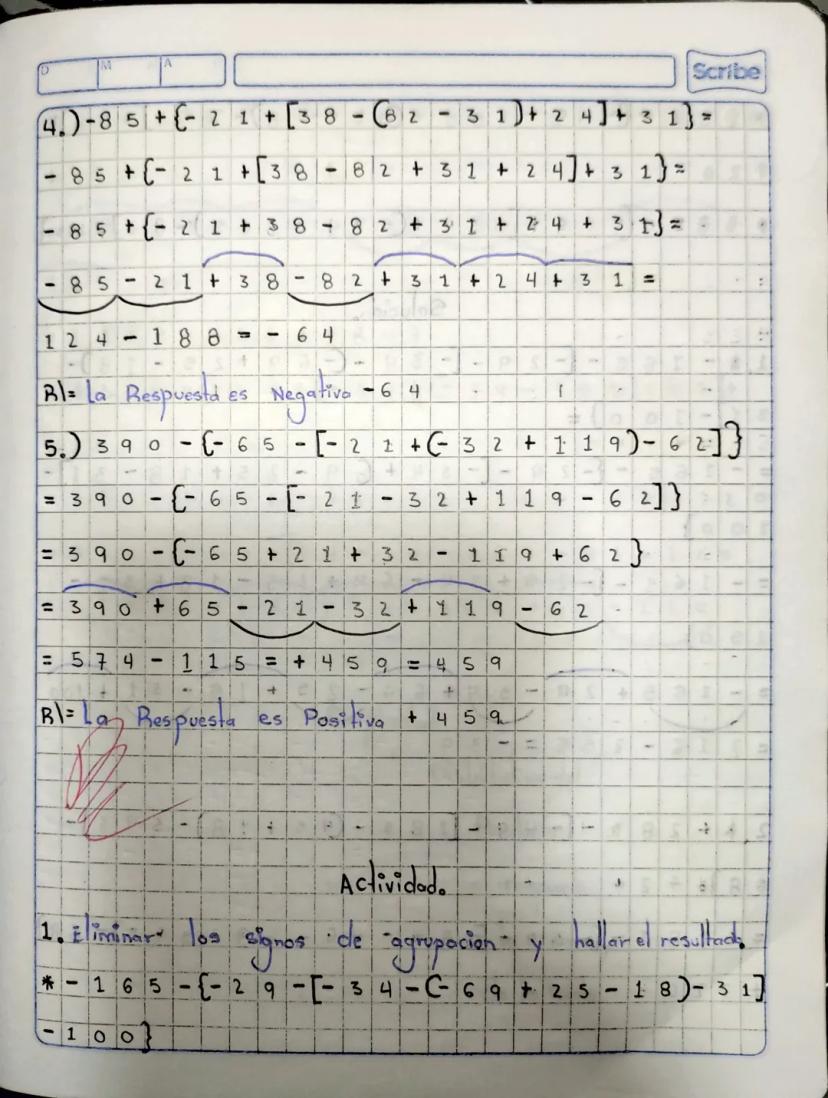 D M A
Scribe
4.) -85 + {-21 + [38 - (82 - 31) + 24] + 31} =
-85 + {-21 + [38 - 82 + 31 + 24] + 31} =
-85 + {-21 + 38 - 82 + 31 + 24 + 31} =
-85 - 21 + 38 - 82 + 31 + 24 + 31 =
124 - 188 = -64
R\= La Respuesta es Negativa -64
5.) 390 - {-65 - [-21 + (-32 + 119) - 62]}
= 390 - {-65 - [-21 - 32 + 119 - 62]}
= 390 - {-65 + 21 + 32 - 119 + 62}
= 390 + 65 - 21 - 32 + 119 - 62
= 574 - 115 = +459 = 459
R\= La Respuesta es Positiva +459
Actividad.
1. Eliminar los signos de agrupacion y hallar el resultado.
* -165 - {-29 - [-34 - (-69 + 25 - 18) - 31]
-100}